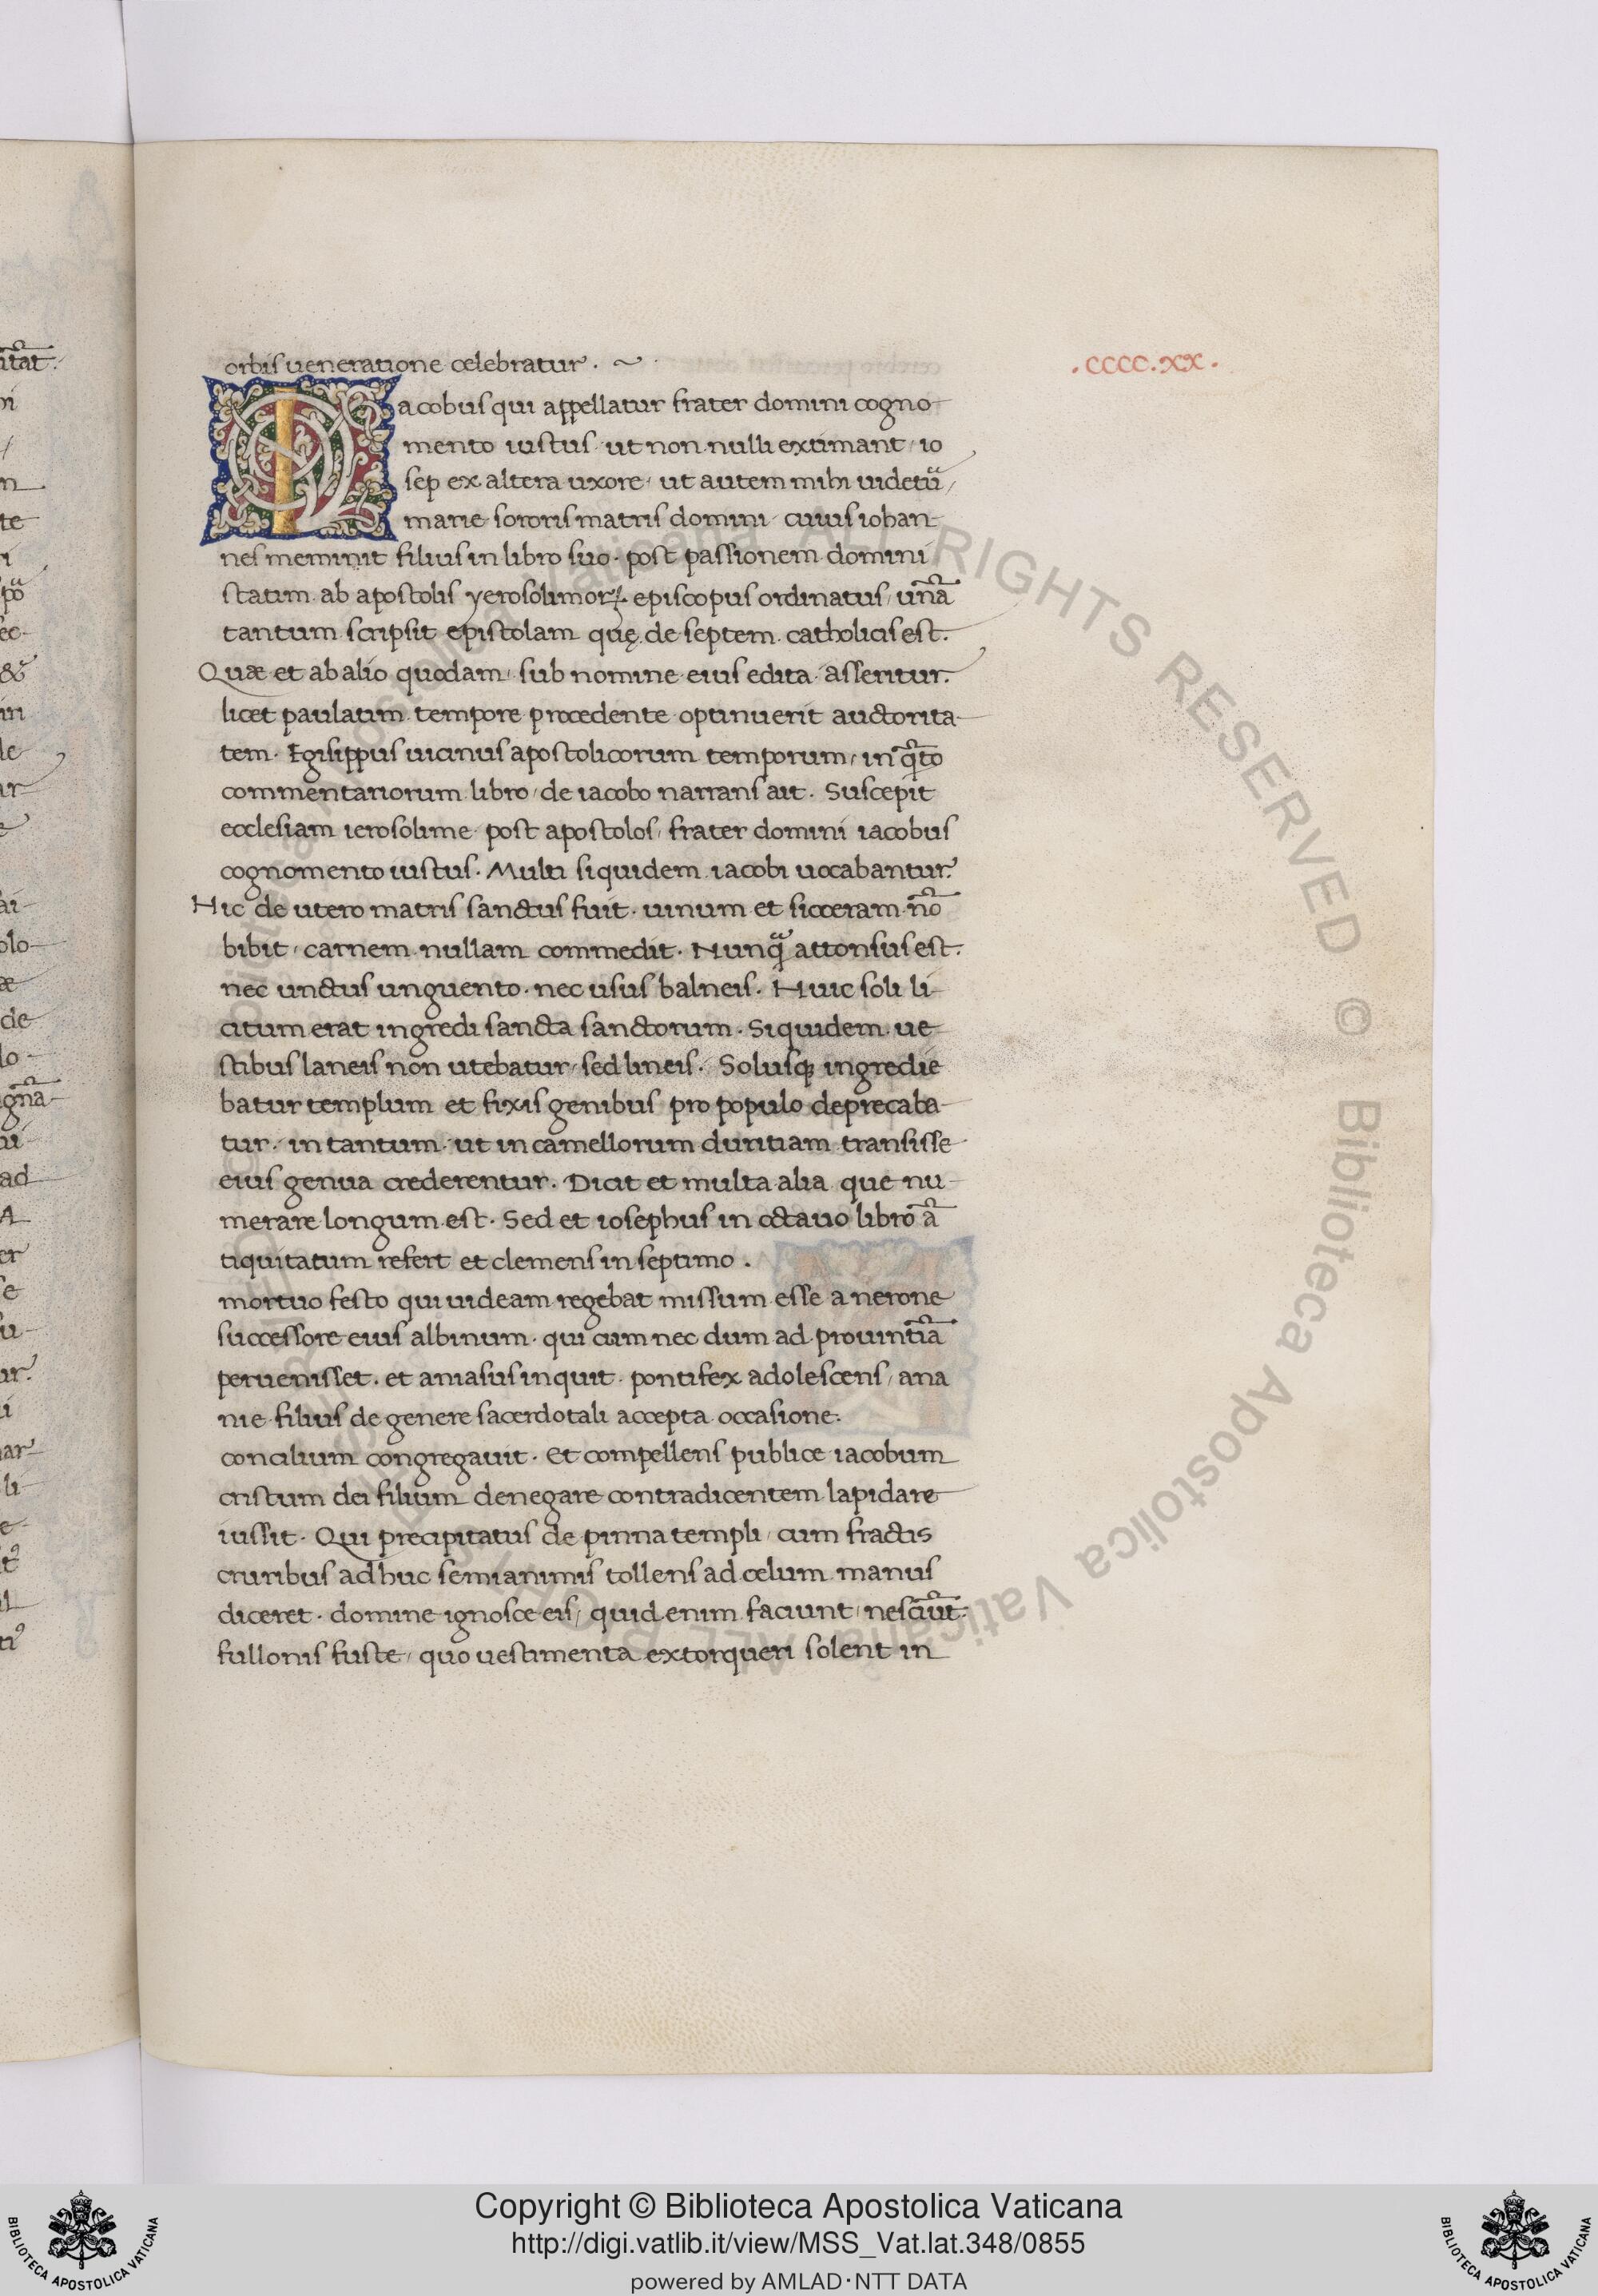 orbis ueneratione celebratur . ~ .
.CCCC.XX.
Iacobus qui appellatur frater domini cogno-
mento iustus · ut non nulli extimant, io
sep ex altera uxore, ut autem mihi uidetur̃,
marie sororis matris domini cuius iohan-
nes meminit filius in libro suo · post passionem domini
statim ab apostolis yerosolimorꝝ episcopus ordinatus, unã
tantum scripsit epistolam quę de septem catholicis est.
Quæ et ab alio quodam, sub nomine eius edita asseritur.
licet paulatim tempore procedente optinuerit auctorita-
tem. Egisippus uicinus apostolicorum temporum, in q̃rto
commentariorum libro, de iacobo narrans ait. Suscepit
ecclesiam ierosolime post apostolos, frater domini iacobus
cognomento iustus. Multi siquidem iacobi uocabantur.
Hic de utero matris sanctus fuit. uinum et sicceram nõ
bibit, carnem nullam commedit. Nunq̃ attonsus est.
nec unctus unguento. nec usus balneis. Huic soli li-
citum erat ingredi sancta sanctorum. Siquidem ue-
stibus laneis non utebatur, sed lineis. Solusqꝫ ingredie
batur templum et fixis genibus pro populo deprecaba-
tur. in tantum ut in camellorum duritiam transisse
eius genua crederentur. Dicit et multa alia que nu-
merare longum est. Sed et iosephus in octauo libro ã
tiquitatum refert et clemens in septimo .
mortuo festo qui uideam regebat missum esse a nerone
successore eius albinum. qui cum nec dum ad prouintiã
peruenisset. et aniasus inquit pontifex adolescens, ana
nie filius de genere sacerdotali accepta occasione.
concilium congregauit. Et compellens publice iacobum
cristum dei filium denegare contradicentem lapidare
iussit. Qui precipitatus de pinna templi, cum fractis
cruribus ad huc semianimis tollens ad celum manus
diceret. domine ignosce eis, quid enim faciunt, nesciũt.
fullonis fuste, quo uestimenta extorqueri solent in
ALL RIGHTS RESERVED © Biblioteca Apostolica Vaticana
BIBLIOTECA APOSTOLICA VATICANA
Copyright © Biblioteca Apostolica Vaticana
http://digi.vatlib.it/view/MSS_Vat.lat.348/0855
powered by AMLAD·NTT DATA
BIBLIOTECA APOSTOLICA VATICANA